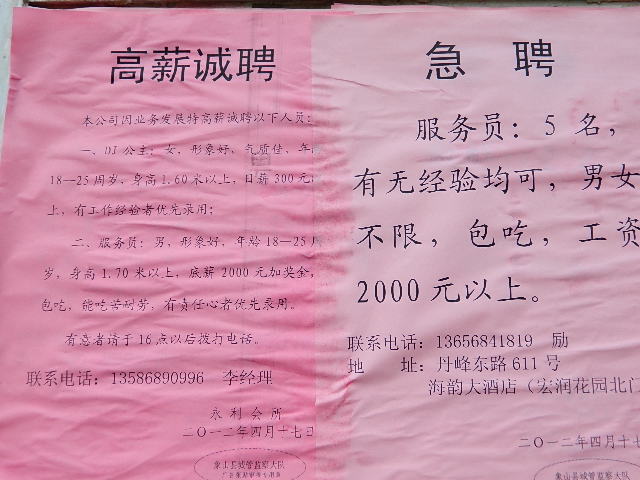 高薪诚聘
本公司因业务发展特高薪诚聘以下人员:
一、DJ公主:女,形象好,气质佳,年
18—25周岁,身高1.60米以上,日薪300元
上,有工作经验者优先录用;
二、服务员:男,形象好,年龄18—25
岁,身高1.70米以上,底薪2000元加奖金,
包吃,能吃苦耐劳,有责任心者优先录用。
有意者请于16点以后拨打电话。
联系电话:13586890996 李经理
永利会所
二〇一二年四月十七日
象山县城管监察大队
急 聘
服务员:5名,
有无经验均可,男女
不限,包吃,工资
2000元以上。
联系电话:13656841819 励
地 址:丹峰东路611号
海韵大酒店(宏润花园北门
二〇一二年四月十
象山县城管监察大